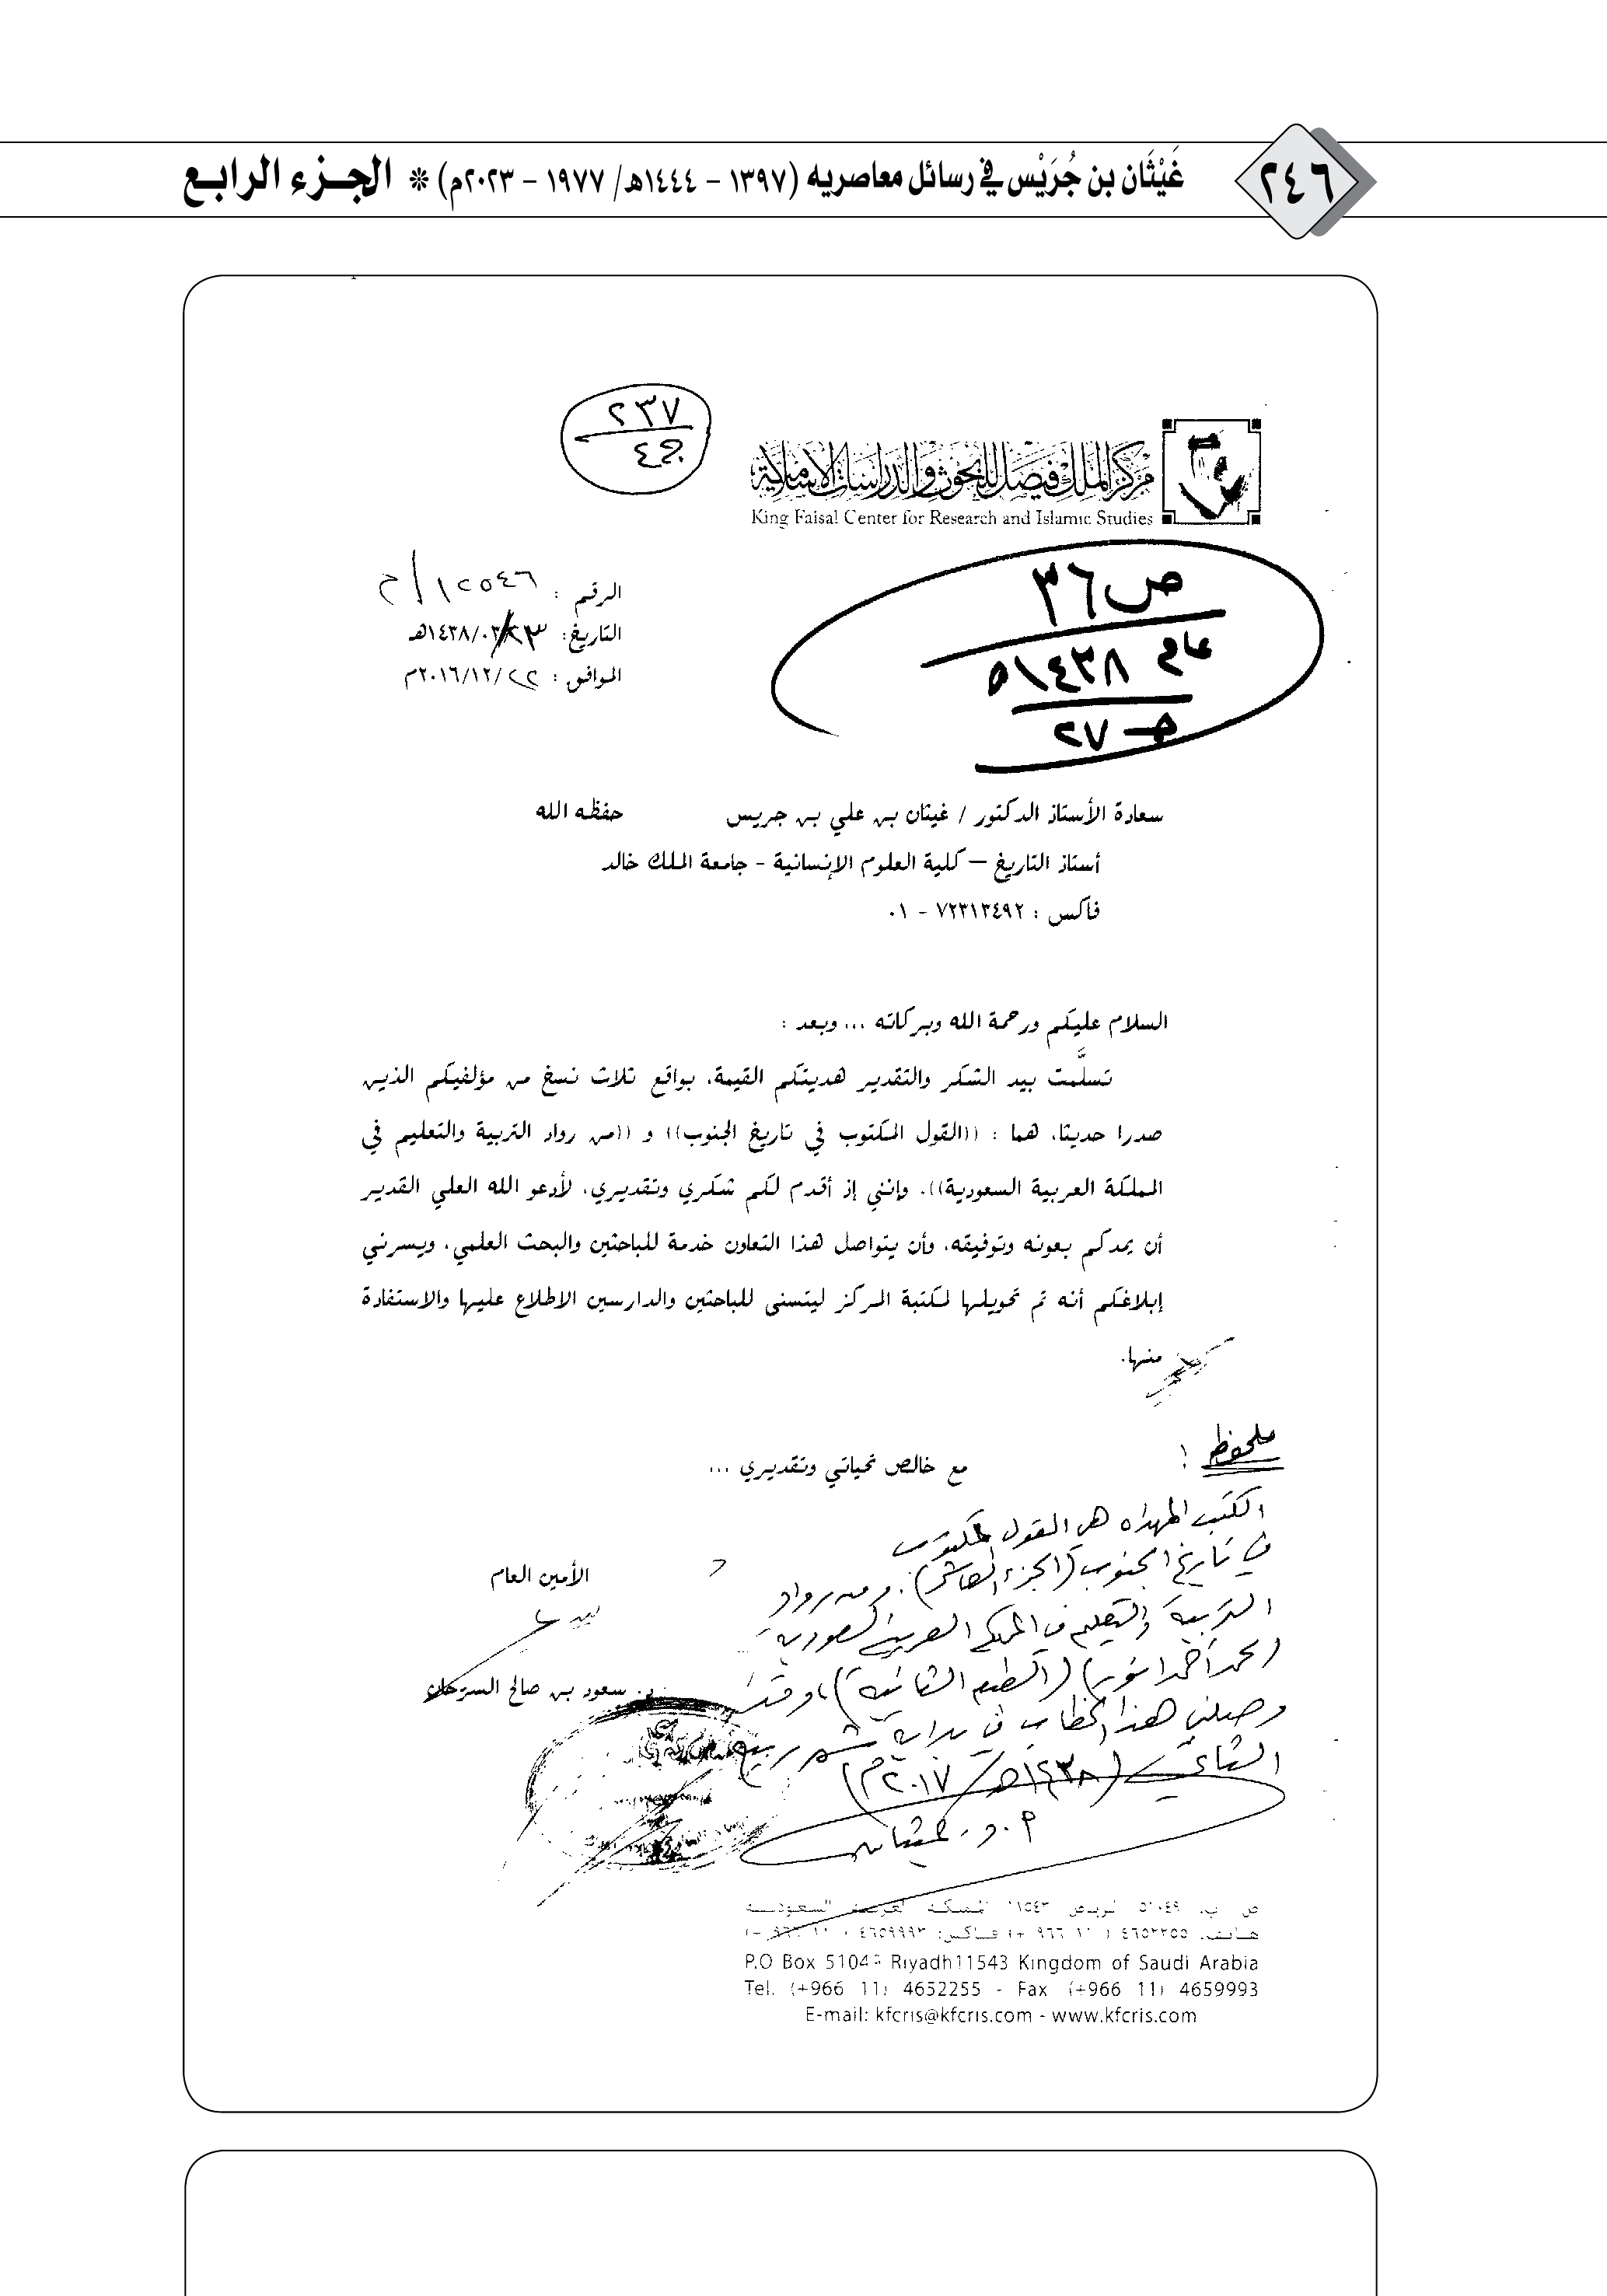 ٢٤٦
غَيْثَان بن جُرَيْس في رسائل معاصريه (١٣٩٧ - ١٤٤٤هـ/ ١٩٧٧ - ٢٠٢٣م) * الجـزء الرابـع
٢٣٧
ج٤
مركز الملك فيصل للبحوث والدراسات الإسلامية
King Faisal Center for Research and Islamic Studies
ص ٣٦
عام ١٤٣٨هـ
٢٧
الرقم : ١٢٥٤٦/م
التاريخ: ١٤٣٨/٠٣/٢٣هـ
الموافق : ٢٠١٦/١٢/٢٢م
سعادة الأستاذ الدكتور / غيثان بن علي بن جريس حفظه الله
أستاذ التاريخ – كلية العلوم الإنسانية - جامعة الملك خالد
فاكس : ٧٢٣١٣٤٩٢ - ٠١
السلام عليكم ورحمة الله وبركاته ... وبعد :
تسلَّمت بيد الشكر والتقدير هديتكم القيمة، بواقع ثلاث نسخ من مؤلفيكم الذين
صدرا حديثا، هما : ((القول المكتوب في تاريخ الجنوب)) و ((من رواد التربية والتعليم في
المملكة العربية السعودية)). وإنني إذ أقدم لكم شكري وتقديري، لأدعو الله العلي القدير
أن يمدكم بعونه وتوفيقه، وأن يتواصل هذا التعاون خدمة للباحثين والبحث العلمي، ويسرني
إبلاغكم أنه تم تحويلها لمكتبة المركز ليتسنى للباحثين والدارسين الاطلاع عليها والاستفادة
منها.
مع خالص تحياتي وتقديري ...
الأمين العام
سعود بن صالح السرحان
ملحوظة :
الكتب المهداه هي القول المكتوب
في تاريخ الجنوب (الجزء العاشر). ومن رواد
التربية والتعليم في المملكة العربية السعودية
(محمد أحمد أنور) (الطبعة الثانية)، وقد
وصلني هذا الخطاب في بداية شهر ربيع
الثاني (١٤٣٨هـ/ ٢٠١٧م)
أ.د. غيثان
ص ب. ٥١٠٤٩ الرياض ١١٥٤٣ المملكة العربية السعودية
هاتف: ٤٦٥٢٢٥٥ (١١ ٩٦٦ +) فاكس: ٤٦٥٩٩٩٣ (١١ ٩٦٦ +)
P.O Box 51049 Riyadh11543 Kingdom of Saudi Arabia
Tel. (+966 11) 4652255 - Fax (+966 11) 4659993
E-mail: kfcris@kfcris.com - www.kfcris.com